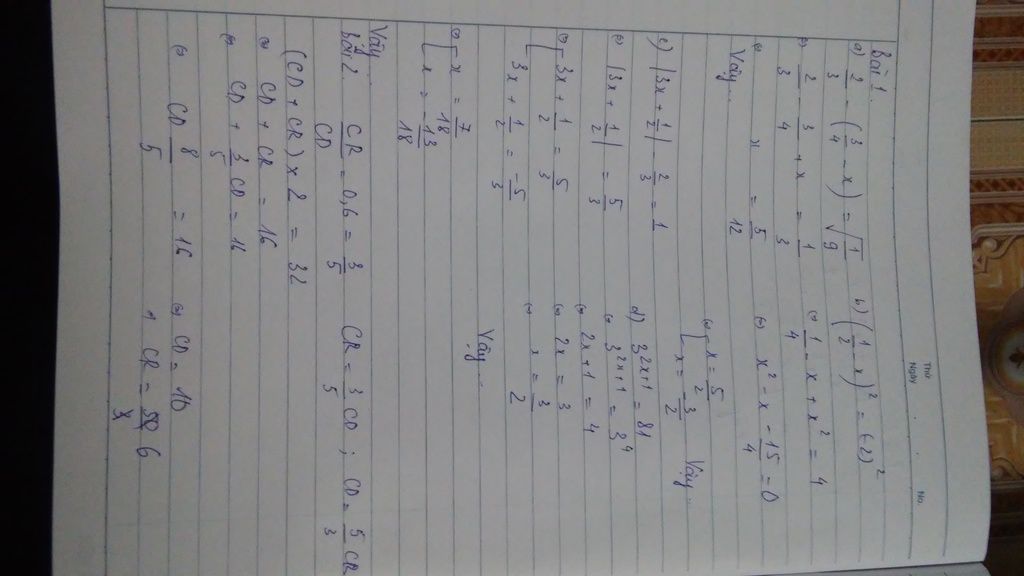 Thứ
Ngày . . No.
Bài 1
a) 2/3 - (3/4 - x) = √(1/9)
⇔ 2/3 - 3/4 + x = 1/3
⇔ x = 5/12
Vậy...
b) (1/2 - x)² = (-2)²
⇔ 1/4 - x + x² = 4
⇔ x² - x - 15/4 = 0
⇔ [ x = 5/2
x = -3/2 Vậy..
c) |3x + 1/2| - 2/3 = 1
⇔ |3x + 1/2| = 5/3
⇔ [ 3x + 1/2 = 5/3
3x + 1/2 = -5/3
⇔ [ x = 7/18
x = -13/18
Vậy
d) 3^(2x+1) = 81
⇔ 3^(2x+1) = 3^4
⇔ 2x+1 = 4
⇔ 2x = 3
⇔ x = 3/2
Vậy..
Bài 2 CR/CD = 0,6 = 3/5 CR = 3/5 CD ; CD = 5/3 CR
(CD + CR) x 2 = 32
⇔ CD + CR = 16
⇔ CD + 3/5 CD = 16
⇔ CD 8/5 = 16 ⇔ CD = 10
⇒ CR = 6